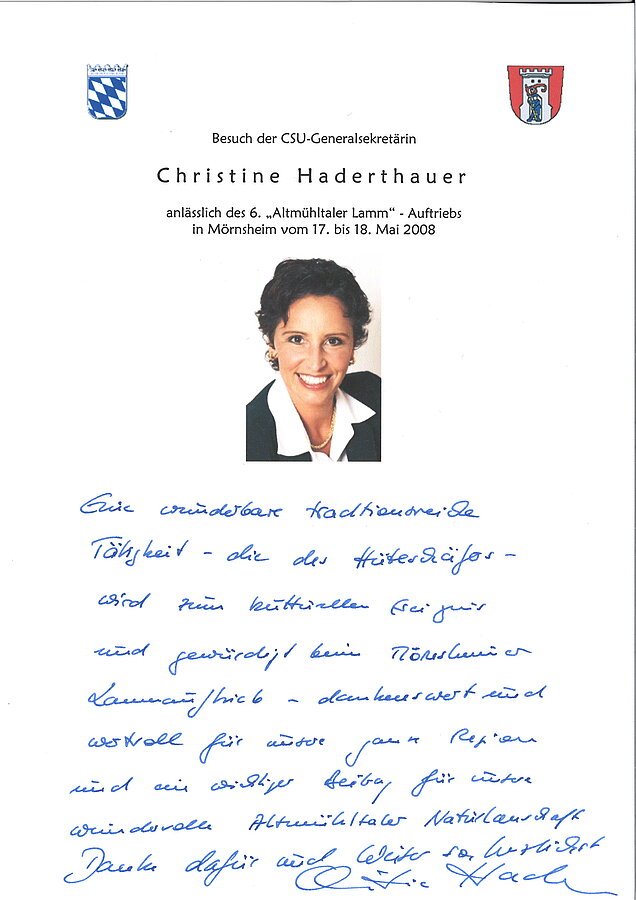 Besuch der CSU-Generalsekretärin
Christine Haderthauer
anlässlich des 6. „Altmühltaler Lamm“ - Auftriebs
in Mörnsheim vom 17. bis 18. Mai 2008
Eine wunderbare traditionsreiche
Tätigkeit – die des Hüteschäfers –
wird zum kulturellen Ereignis
und gewürdigt beim Mörnsheimer
Lammauftrieb – dankenswert und
wertvoll für unsere ganze Region
und ein wichtiger Beitrag für unsere
wundervolle Altmühltaler Naturlandschaft
Danke dafür und weiter so herzlichst